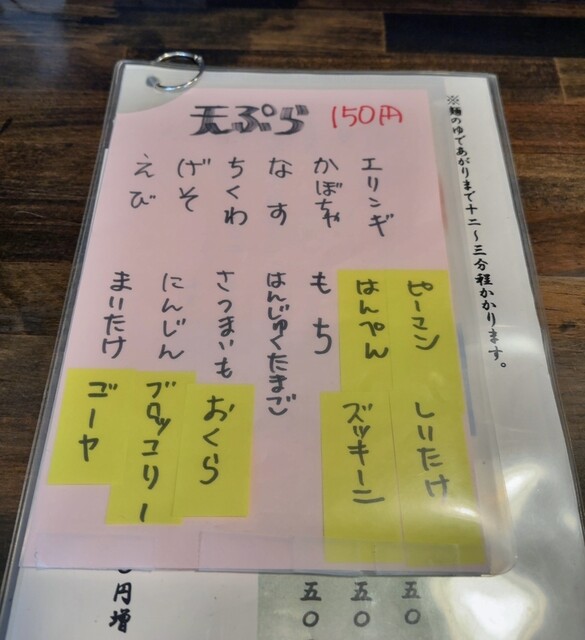 ※麺のゆであがりまで十二~三分程かかります。
天ぷら 150円
エリンギ
かぼちゃ
なす
ちくわ
げそ
えび
ピーマン
はんぺん
もち
はんじゅくたまご
さつまいも
にんじん
まいたけ
しいたけ
ズッキーニ
おくら
ブロッコリー
ゴーヤ
五〇
五〇
五〇
円増